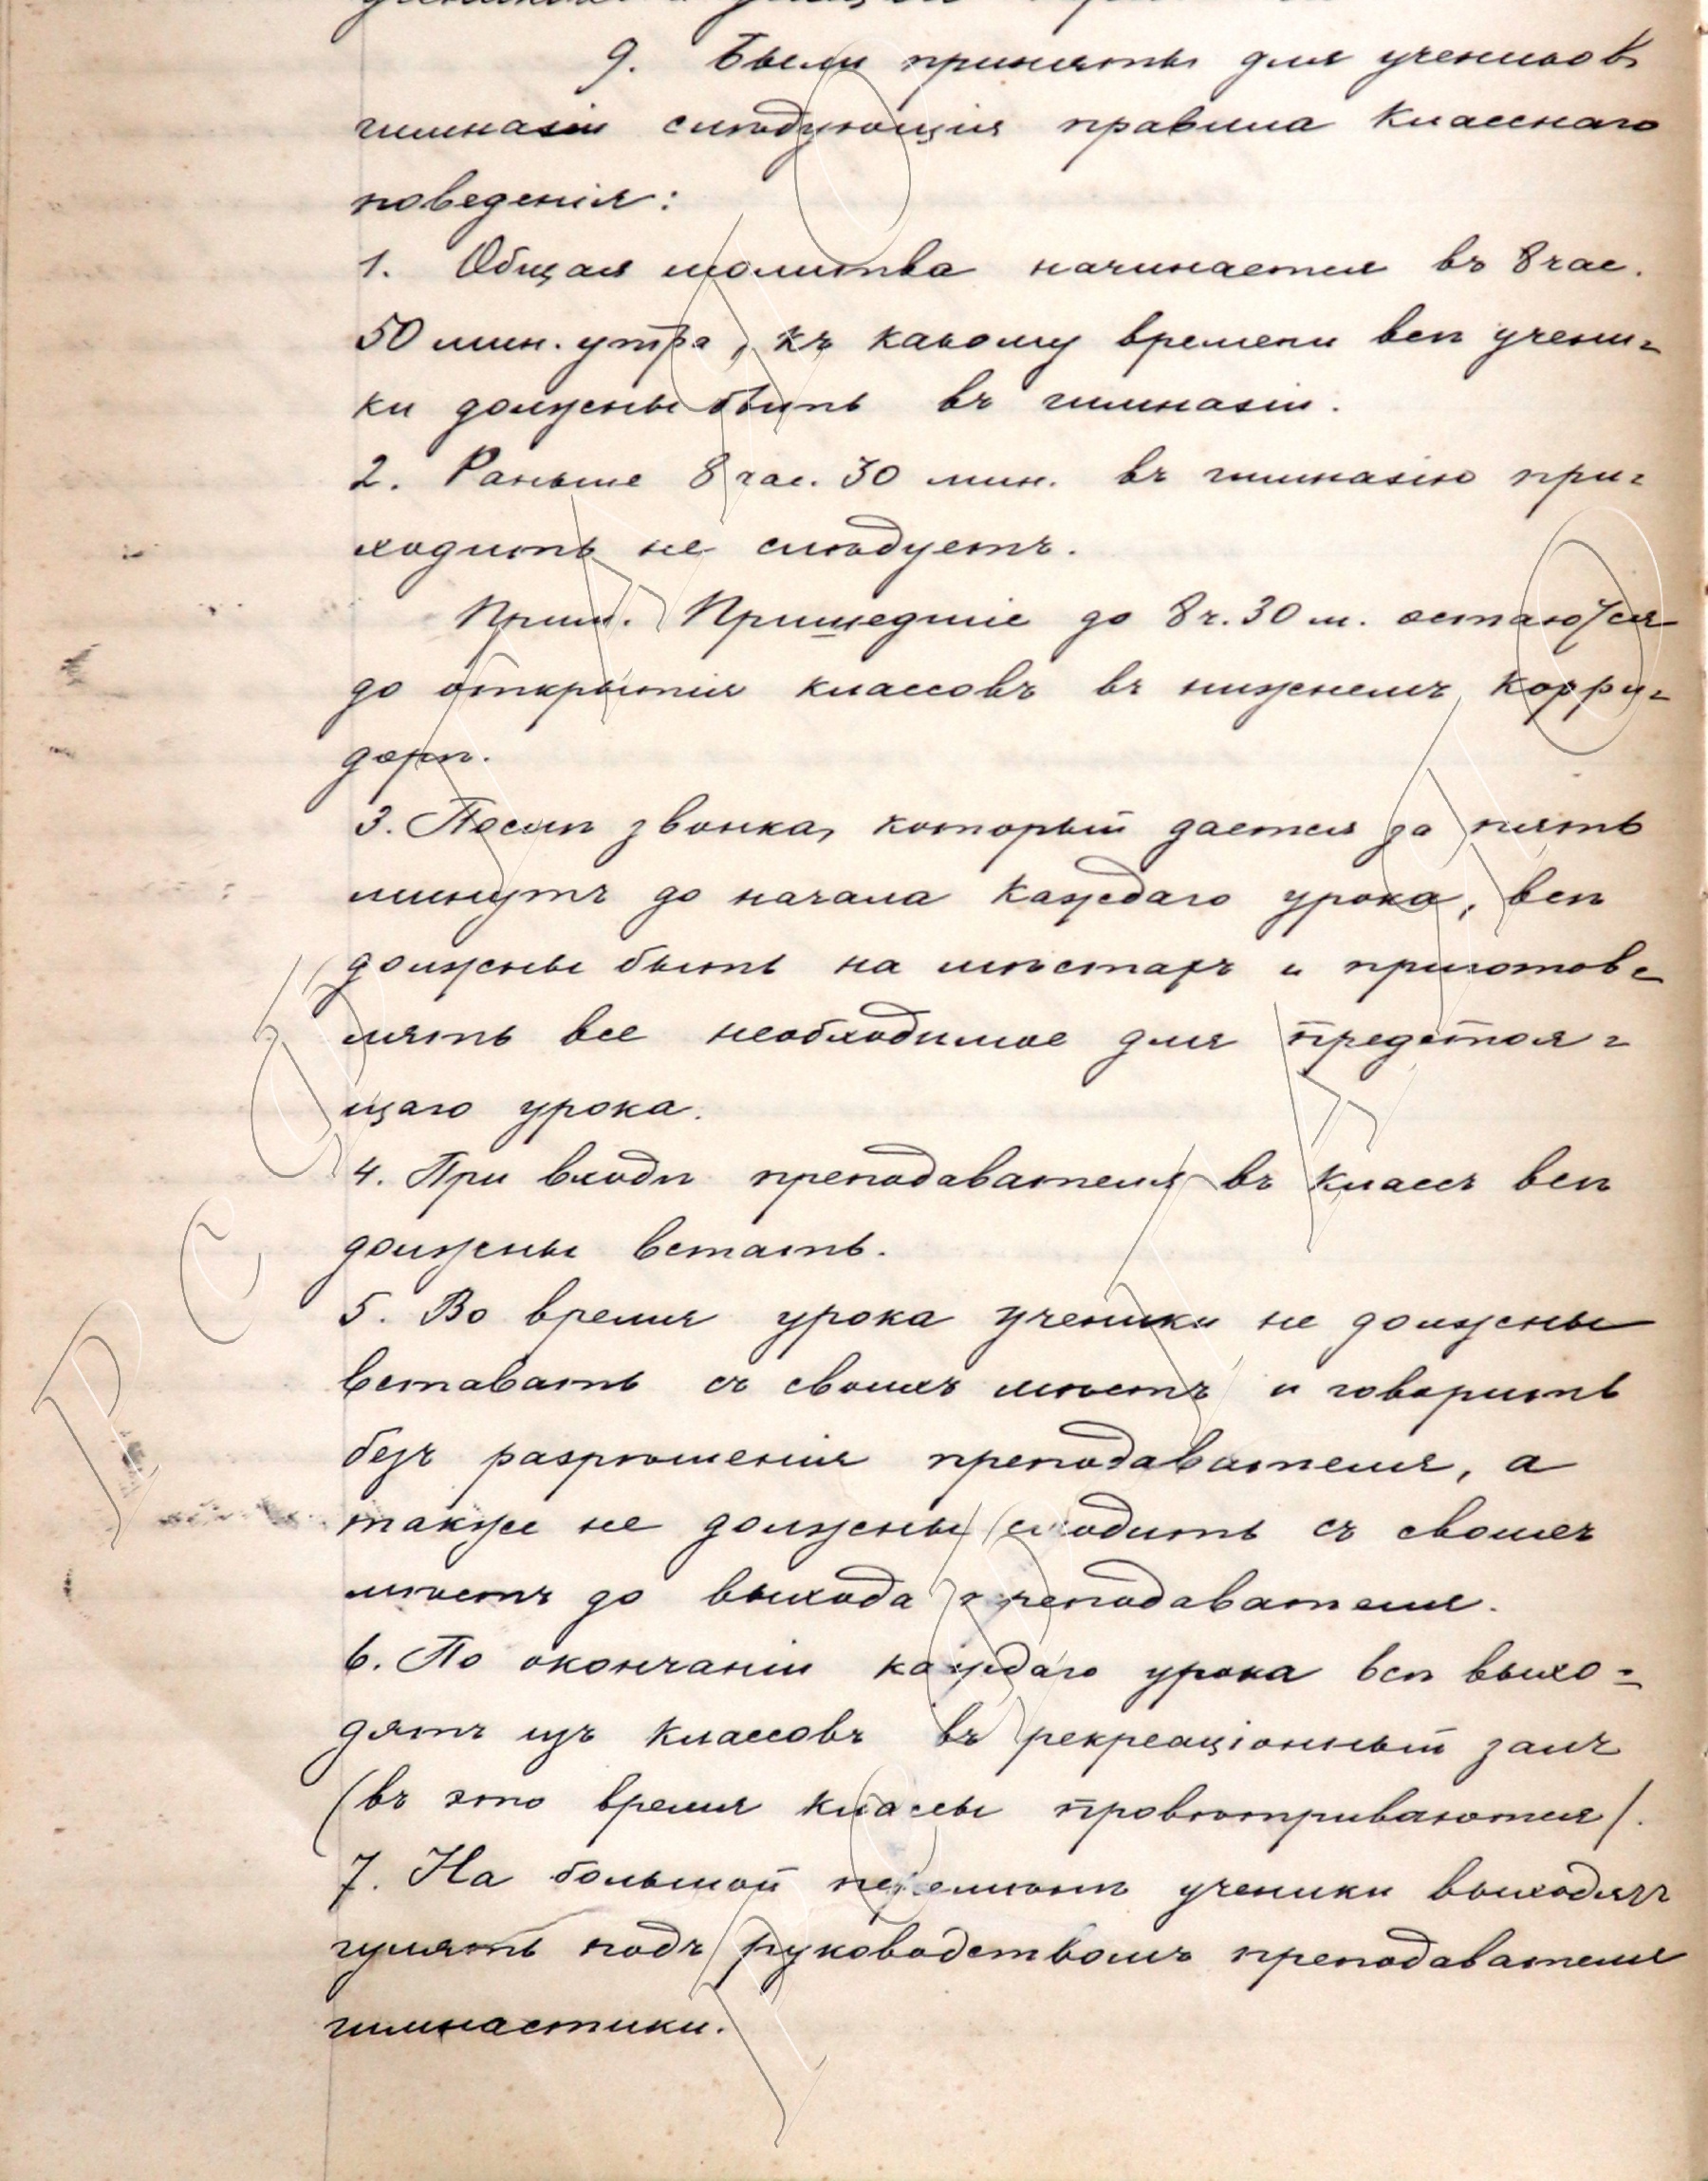 9. Были приняты для учениковъ
гимназіи слѣдующія правила класснаго
поведенія:
1. Общая молитва начинается въ 8 час.
50 мин. утра, къ какому времени всѣ учени-
ки должны быть въ гимназіи.
2. Раньше 8 час. 30 мин. въ гимназію при-
ходить не слѣдуетъ.
Прим. Пришедшіе до 8 ч. 30 м. остаются
до открытія классовъ въ нижнемъ корри-
дорѣ.
3. Послѣ звонка, который дается за пять
минутъ до начала каждаго урока, всѣ
должны быть на мѣстахъ и приготов-
лять все необходимое для предстоя-
щаго урока.
4. При входѣ преподавателя въ классъ всѣ
должны встать.
5. Во время урока ученики не должны
вставать съ своихъ мѣстъ и говорить
безъ разрѣшенія преподавателя, а
также не должны сходить съ своихъ
мѣстъ до выхода преподавателя.
6. По окончаніи каждаго урока всѣ выхо-
дятъ изъ классовъ въ рекреаціонный залъ
(въ это время классы провѣтриваются).
7. На большой перемѣнѣ ученики выходятъ
гулять подъ руководствомъ преподавателя
гимнастики.